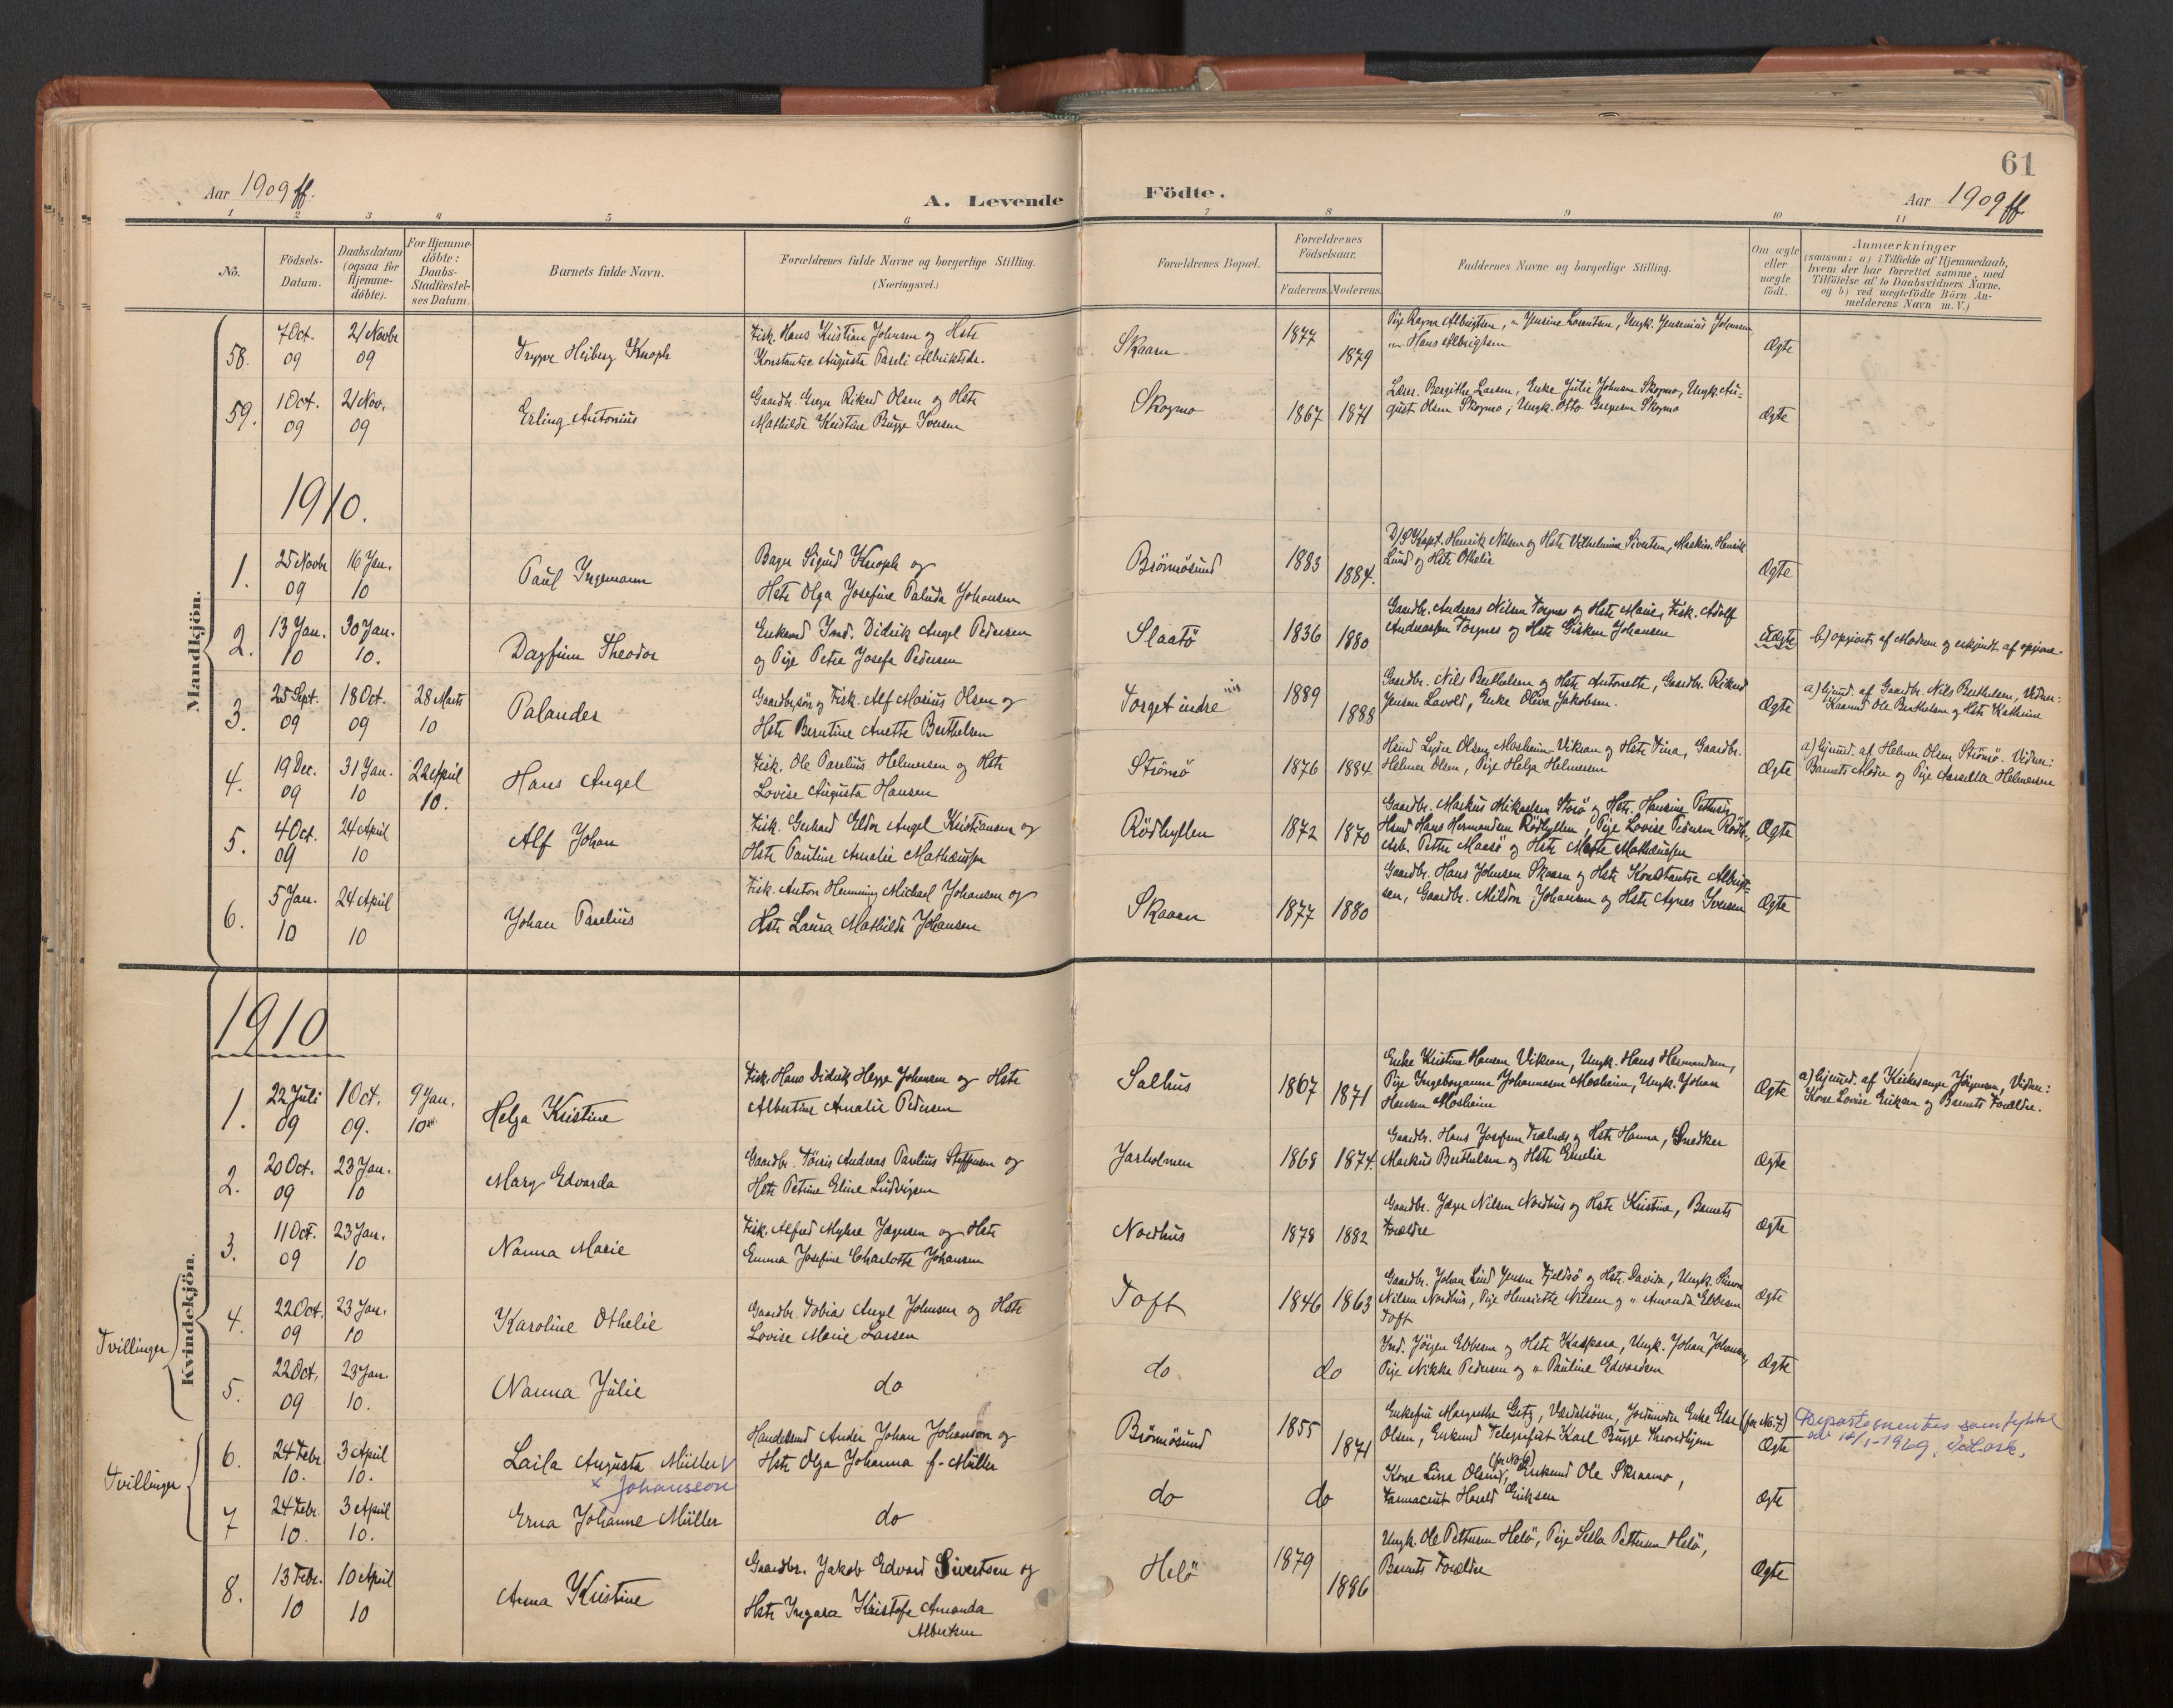 61
Aar 1909 ff.
A. Levende Födte.
Aar 1909 ff.
1 2 3 4 5 6 7 8 9 10 11
No.
Födsels-Datum.
Daabsdatum (ogsaa for Hjemmedöbte).
For Hjemmedöbte: Daabs-Stadfæstelses Datum.
Barnets fulde Navn.
Forældrenes fulde Navne og borgerlige Stilling. (Næringsvei.)
Forældrenes Bopæl.
Forældrenes Födselsaar.
Faderens. Moderens.
Faddernes Navne og borgerlige Stilling.
Om ægte eller uægte födt.
Anmærkninger (saasom: a) i Tilfælde af Hjemmedaab, hvem der har forrettet samme, med Tilföielse af to Daabsvidners Navne, og b) ved uægtefödte Börn Anmelderens Navn m. V.)
Mandkjön.
58. 7 Oct. 09 21 Novbr 09 Trygve Heiberg Knoph
Fisk. Hans Kristian Johnsen og Hstr
Konstantse Augusta Pareli Albriktsdr.
Skaaren 1877 1879
Pige Ragna Albrigtsen, " Jensine Lorentsen, Ungk. Jensenius Johansen
" Hans Albrigtsen
Ægte
59. 1 Oct. 09 21 Nov. 09 Erling Antonius
Gaardbr. Greger Rikard Olsen og Hstr
Mathilde Kristine Bugge Iversen
Skogmo 1867 1871
Lærer. Bergithe Larsen, Enke Julie Johnsen Skogmo, Ungk. Au-
gust Olsen Skogmo, Ungk. Otto Gregersen Skogmo
Ægte
1910.
1. 25 Novbr 09 16 Jan. 10 Paul Ingemann
Bager Sigurd Knoph og
Hstr Olga Josefine Paluda Johansen
Brönnösund 1883 1884.
D/S Kapt. Henrik Nilsen og Hstr Vilhelmine Sivertsen, Maskin. Henrik
Lund og Hstr Othelie
Ægte
2. 13 Jan. 10 30 Jan. 10. Dagfinn Theodor
Enkemd Ind. Didrik Angel Pedersen
og Pige Petra Josefa Pedersen
Slaatö 1836 1880
Gaardbr. Andreas Nilsen Torgnes og Hstr Marie, Fisk. Adolf
Andreassen Torgnes og Hstr Gisken Johansen
Uægte
b) opgivet af Moderen og erkjendt af opgivne.
3. 25 Sept. 09 18 Oct. 09 28 Marts 10 Palander
Gaardbrsön og Fisk. Alf Marius Olsen og
Hstr Berntine Anette Berthelsen
Torget indre 1889 1888
Gaardbr. Nils Berthelsen og Hstr Antonette, Gaardbr. Rikard
Jensen Lavold, Enke Oliva Jakobsen.
Ægte
a) hjemd. af Gaardbr. Nils Berthelsen, Vidner:
Kaarmd Ole Berthelsen og Hstr Kathrine
4. 19 Dec. 09 31 Jan. 10 22 April 10. Hans Angel
Fisk. Ole Parelius Helmersen og Hstr
Lovise Augusta Hansen
Strömö 1876 1884.
Hsmd Lyder Olsen Mosheim-Vikran og Hstr Tina, Gaardbr.
Helmer Olsen, Pige Helga Helmersen
Ægte
a) hjemd. af Helmer Olsen Strömö. Vidner:
Barnets Moder og Pige Helmersen
5. 4 Oct. 09 24 April 10 Alf Johan
Fisk. Gerhard Eldor Angel Kristiansen og
Hstr Pauline Amalie Mathæussen
Rödhyllen 1872 1870
Gaardbr. Markus Mikaelsen Storö og Hstr. Hansine Pettersen,
Hsmd Hans Hermansen Rödhyllen, Pige Lovise Pedersen Rödh.,
Arb. Petter Maasö og Hstr Mette Mathæussen
Ægte
6. 5 Jan. 10 24 April 10 Johan Parelius
Fisk. Anton Henning Michael Johansen og
Hstr Laura Mathilde Johansen
Skaaren 1877 1880
Gaardbr. Hans Johnsen Skaaren og Hstr Konstantse Albrigt-
sen, Gaardbr. Mildor Johansen og Hstr Agnes Iversen
Ægte
Kvindekjön.
1910
1. 22 Juli 09 1 Oct. 09. 9 Jan. 10 Helga Kristine
Fisk. Hans Didrik Hegge Johansen og Hstr
Albertine Amalie Pedersen
Salhus 1867 1871
Enke Kristine Hansen Vikran, Ungk. Hans Hermansen,
Pige Ingeborganna Johannesen Mosheim, Ungk. Johan
Hansen Mosheim
Ægte
a) hjemd. af Kirkesanger Jörgensen, Vidner:
Kone Lovise Eriksen og Barnets Forældre.
2. 20 Oct. 09 23 Jan. 10 Mary Edvarda
Gaardbr. Töiris Andreas Parelius Steffensen og
Hstr Petrine Eline Ludvigsen
Jarholmen 1868 1874.
Gaardbr. Hans Josefsen Trælnes og Hstr Hanna, Snedker
Markus Berthelsen og Hstr Emelie
Ægte
3. 11 Oct. 09 23 Jan. 10 Nanna Marie
Fisk. Alfred Myhre Jægersen og Hstr
Emma Josefine Charlotte Johansen
Nordhus 1878 1882
Gaardbr. Jæger Nilsen Nordhus og Hstr Kristine, Barnets
Forældre
Ægte
Tvillinger
4. 22 Oct. 09 23 Jan. 10 Karoline Othelie
Gaardbr. Tobias Angel Johnsen og Hstr
Lovise Marie Larsen
Toft 1846 1863
Gaardbr. Johan Lind Jensen Fjeldsö og Hstr Davida, Ungk. Simon
Nilsen Nordhus, Pige Henriette Nilsen og " Amanda Ebbesen
Toft
Ægte
5. 22 Oct. 09 23 Jan. 10. Nanna Julie
do do do
Ind. Jörgen Ebbesen og Hstr Kaspara, Ungk. Johan Johansen,
Pige Nikka Pedersen og " Pauline Edvardsen
Ægte
Tvillinger
6. 24 Febr. 10. 3 April 10. Laila Augusta Müller
x Johansson
Handelsmd Ander Johan Johanson og
Hstr Olga Johanna f. Müller
Brönnösund 1855 1871
Enkefru Margrethe Getz, Værdalsören, Jordmoder Enke Else (for No. 7)
Olsen, Enkemd Telegrafist Karl Bugge Throndhjem
Ægte
7 24 Febr. 10. 3 April 10. Erna Johanne Müller
do do do
(for No 6)
Kone Lina Olsen, Enkemd Ole Skraamo,
Farmaceut Harald Eriksen
Ægte
8. 13 Febr. 10 10 April 10 Anna Kristine
Gaardbr. Jakob Edvard Sivertsen og
Hstr Ingara Kristofa Amanda
Albertsen
Helö 1879 1886
Ungk. Ole Pettersen Helö, Pige Sella Pettersen Helö,
Barnets Forældre
Ægte